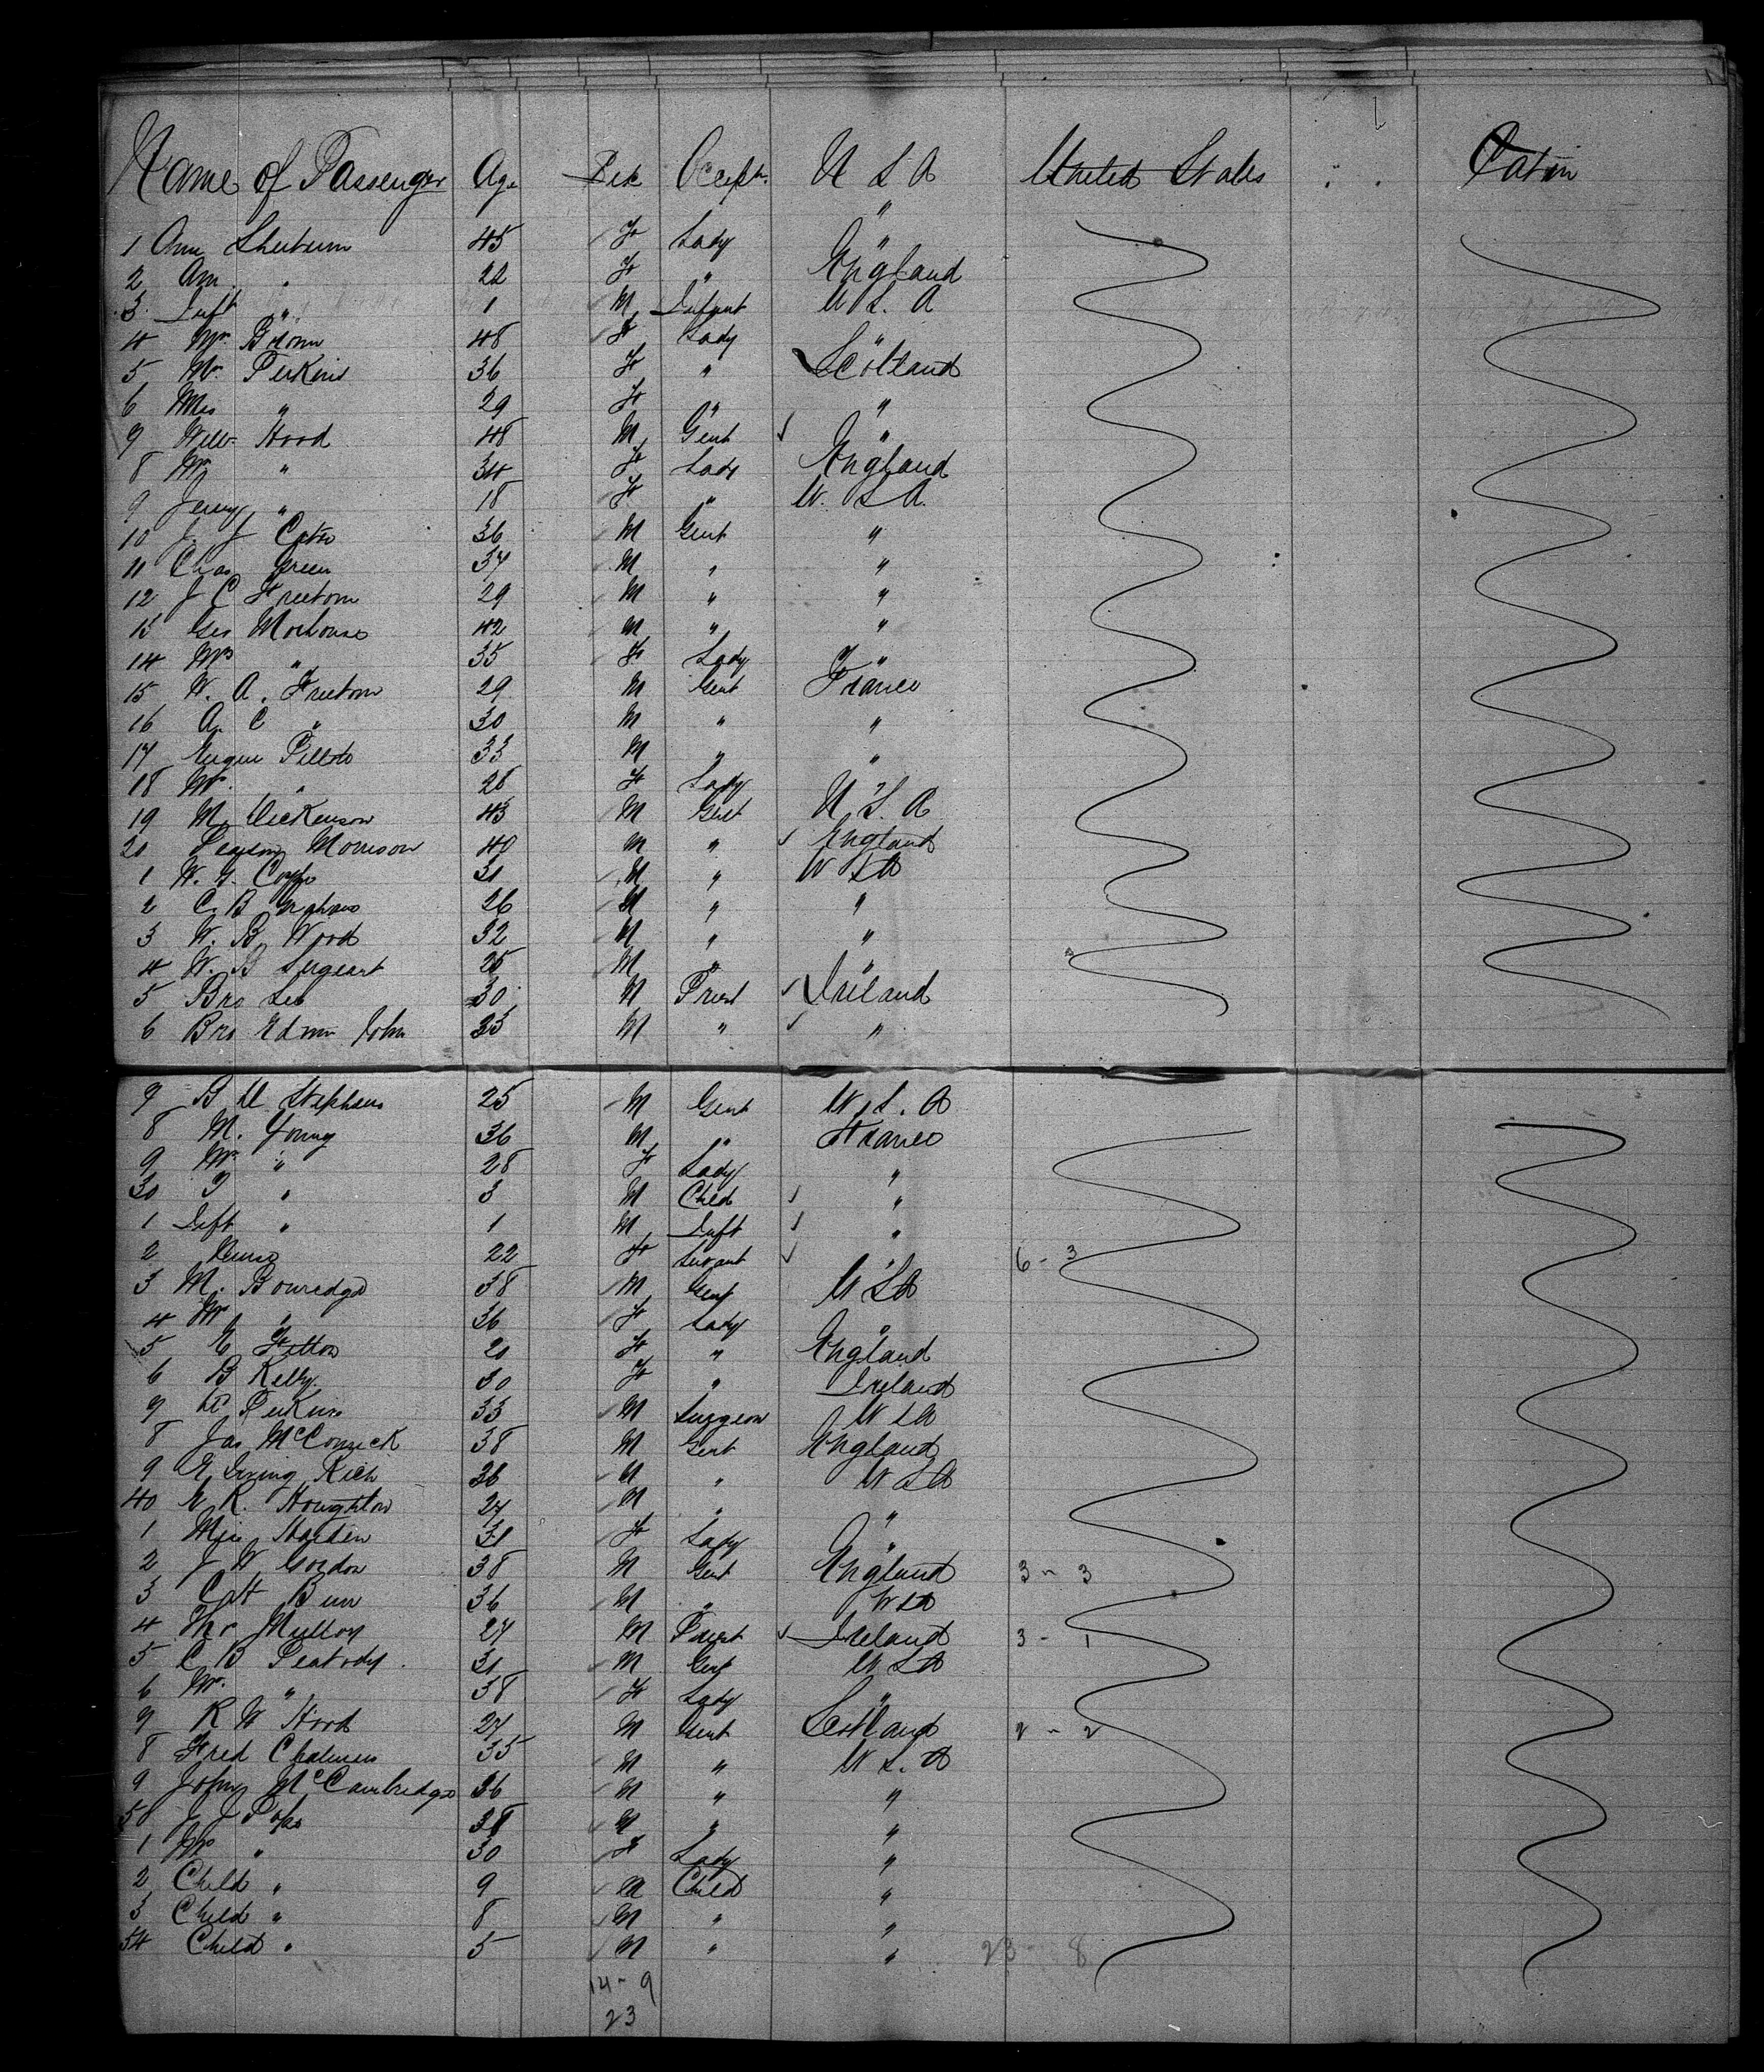 Name of Passenger Age Sex Occupt. U S A United States " . Cabin
"
1 Ann 45 F Lady "
2 Am " 22 F " England
3 Inft " 1 M Infant U S. A
4 Mrs Brown 48 F Lady "
5 Mr. Perkins 36 F " Scotland
6 Mrs " 29 F " "
7 Will Hood 48 M Gent "
8 Mrs " 34 F Lady England
9 Jenny " 18 F " U. S A
10 J. J 36 M Gent "
11 Chas Green 37 M " "
12 J C Freeborn 29 M " "
13 Geo Morhouse 42 M " "
14 Mrs " 35 F Lady "
15 W. A. Freeborn 29 M Gent France
16 A. C " 30 M " "
17 Eugene 33 M " "
18 Mrs " 28 F Lady "
19 M. Dickenson 43 M Gent U. S. A
20 Morrison 40 M " England
1 W. G. 31 M " U S A
2 C. B Graham 26 M " "
3 W. B. Wood 32 M " "
4 W. B Sergeant 25 M " "
5 Bro Leo 30 M Priest Ireland
6 Bro Edwin John 25 M " "
7 B U Stephens 25 M Gent U. S. A
8 M. Young 36 M " France
9 Mrs " 28 F Lady "
30 " 3 M Child "
1 Inft " 1 M Inft "
2 Nurse 22 F Servant " 6 - 3
3 M. 38 M Gent U S A
4 Mrs " 36 F Lady "
5 E Fitton 20 F " England
6 B Kelly. 30 F " Ireland
7 Dr Perkins 33 M Surgeon U S A
8 Jas McCormick 38 M Gent England
9 E Irving Rich 36 M " U S A
40 E R. Houghton 27 M " "
1 Miss Harden 31 F Lady "
2 J W Gordon 38 M Gent England 3 - 3
3 Capt Burr 36 M " U S A
4 Thos 27 M Priest Ireland 3 - 1
5 C. B Peabody. 31 M Gent U S A
6 Mrs " 38 F Lady "
7 R W Hood 27 M Gent Scotland 2 - 2
8 Fred Chalmers 35 M " U S. A
9 John McCambridge 36 M " "
50 J J Pope 38 M " "
1 Mrs " 30 F Lady "
2 Child " 9 M Child "
3 Child " 8 M " "
54 Child " 5 M " " 23 - 8
14 - 9
23